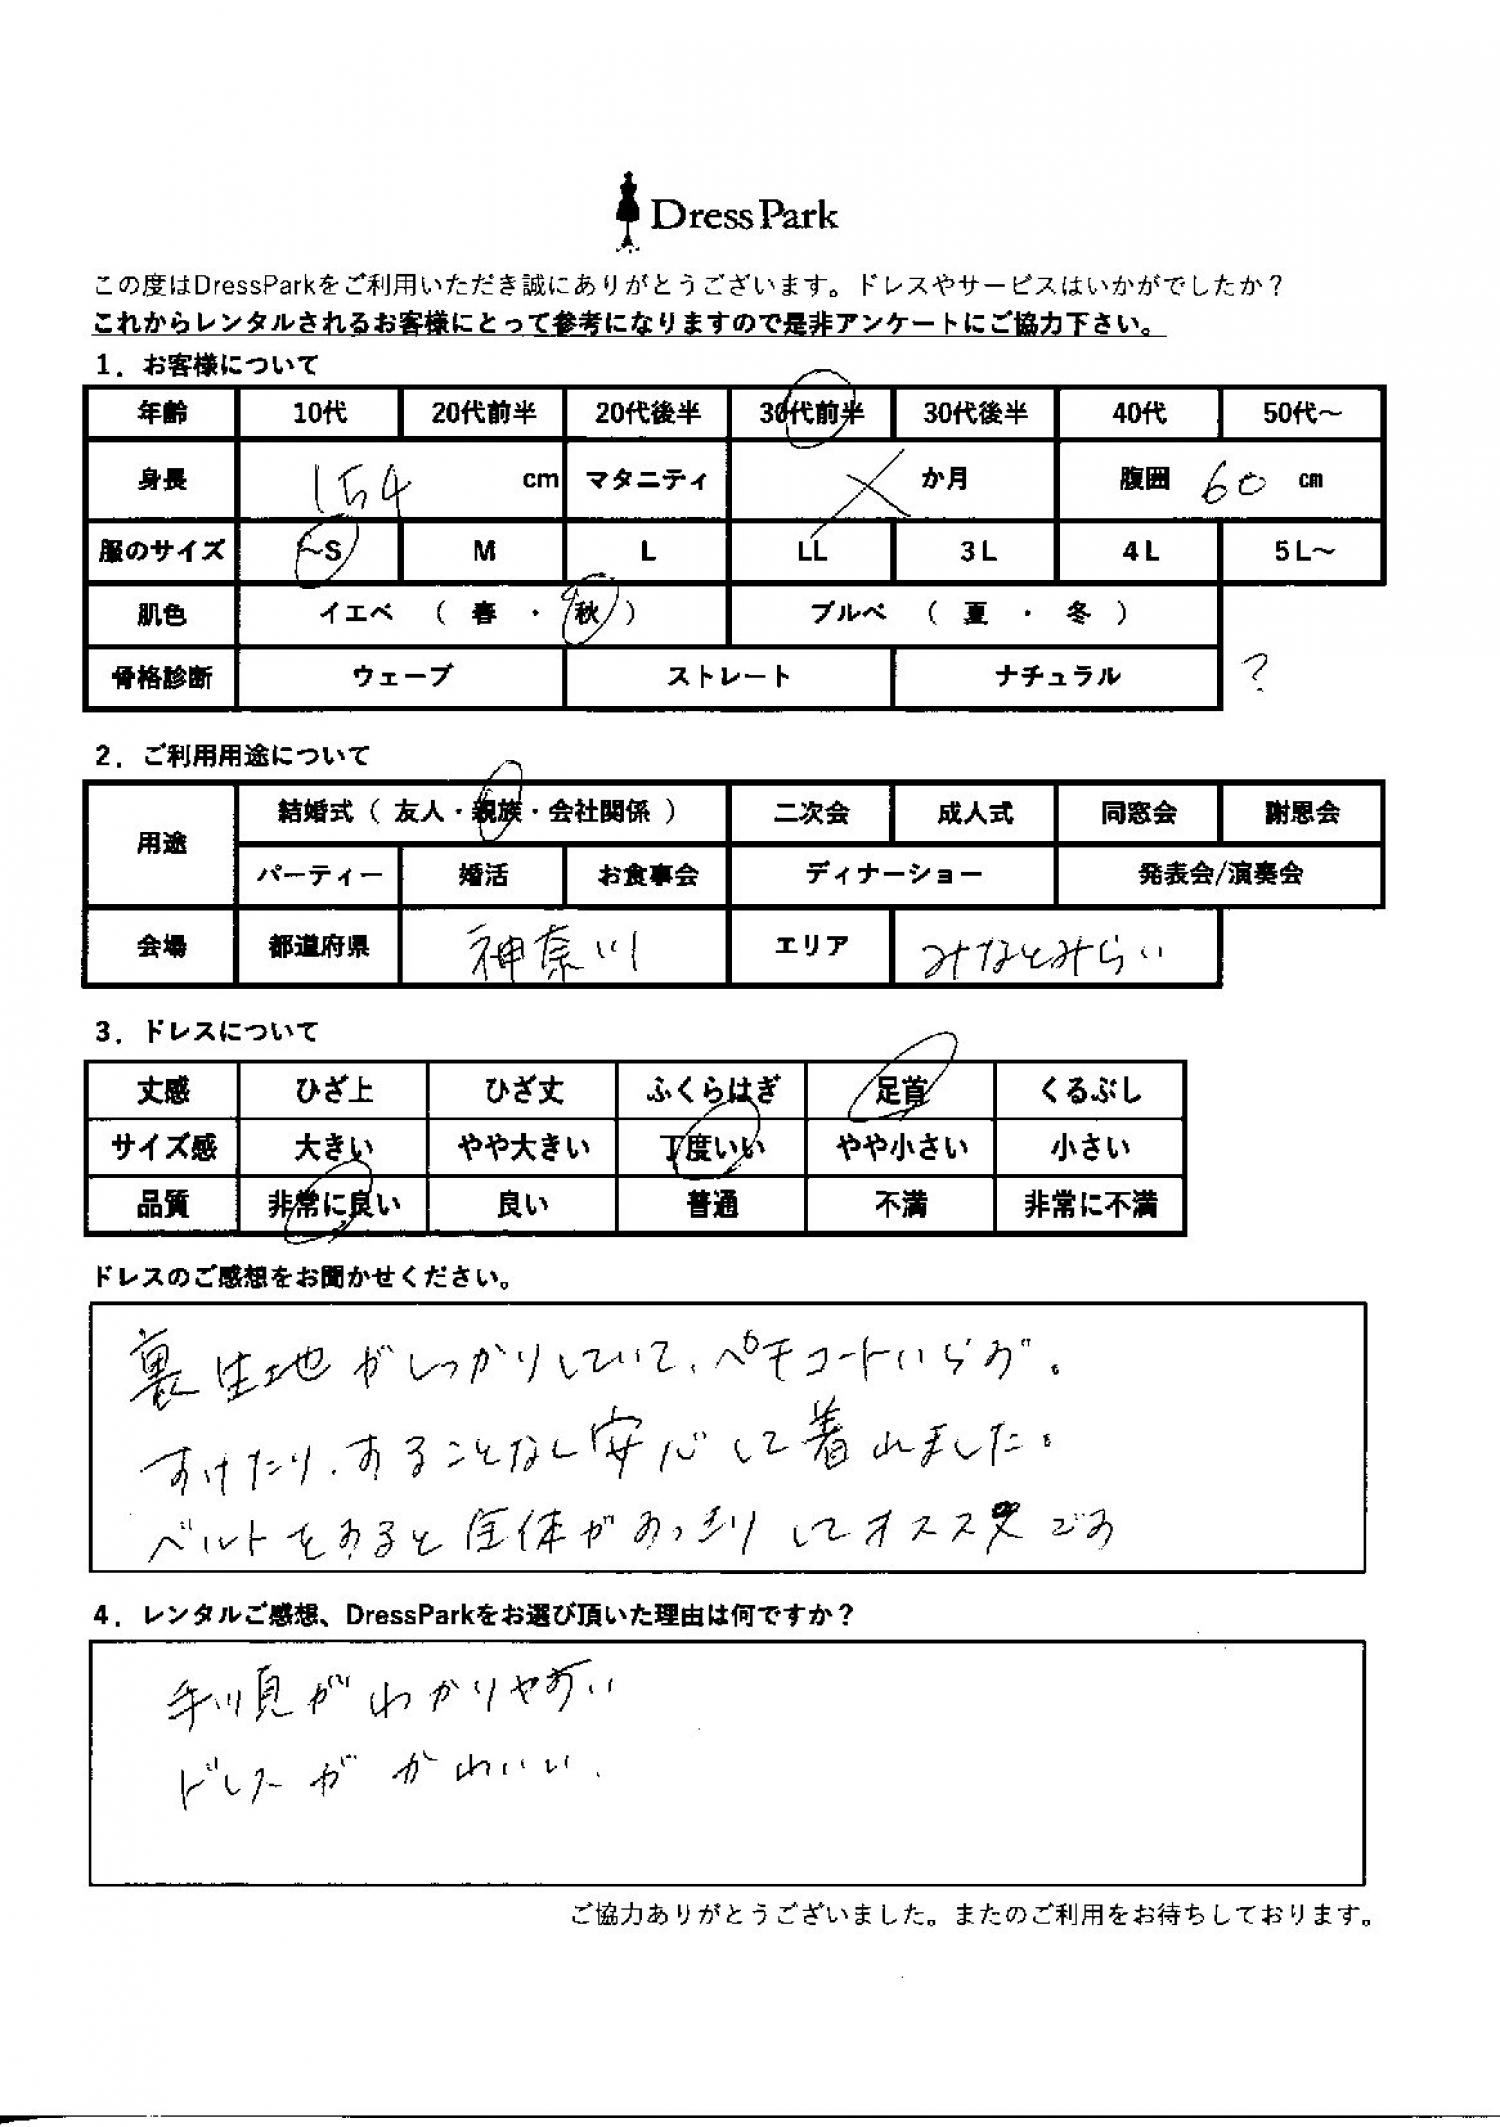 Dress Park
この度はDressParkをご利用いただき誠にありがとうございます。ドレスやサービスはいかがでしたか？
これからレンタルされるお客様にとって参考になりますので是非アンケートにご協力下さい。
1．お客様について
年齢 10代 20代前半 20代後半 30代前半 30代後半 40代 50代～
身長 154 cm マタニティ か月 腹囲 60 cm
服のサイズ ～S M L LL 3L 4L 5L～
肌色 イエベ （ 春 ・ 秋 ） ブルベ （ 夏 ・ 冬 ）
骨格診断 ウェーブ ストレート ナチュラル ?
2．ご利用用途について
用途 結婚式（ 友人・親族・会社関係 ） 二次会 成人式 同窓会 謝恩会
パーティー 婚活 お食事会 ディナーショー 発表会/演奏会
会場 都道府県 神奈川 エリア みなとみらい
3．ドレスについて
丈感 ひざ上 ひざ丈 ふくらはぎ 足首 くるぶし
サイズ感 大きい やや大きい 丁度いい やや小さい 小さい
品質 非常に良い 良い 普通 不満 非常に不満
ドレスのご感想をお聞かせください。
裏生地がしっかりしていて、ペチコートいらず。
すけたり、することなし安心して着れました。
ベルトをすると全体がすっきりしてオススメです
4．レンタルご感想、DressParkをお選び頂いた理由は何ですか？
手順がわかりやすい
ドレスがかわいい、
ご協力ありがとうございました。またのご利用をお待ちしております。